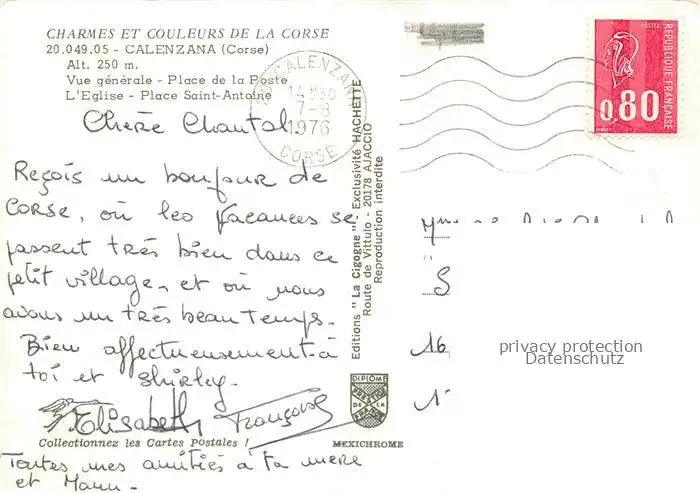 CHARMES ET COULEURS DE LA CORSE
20.049.05 - CALENZANA (Corse)
Alt. 250 m.
Vue générale - Place de la Poste
L'Eglise - Place Saint-Antoine
CALENZANA
14 H 30
7-8
1976
CORSE
POSTES
RÉPUBLIQUE FRANÇAISE
0,80
Chère Chantal
Reçois un bonjour de
CORSE, où les vacances se
passent très bien dans ce
petit village, et où nous
avons un très beau temps.
Bien affectueusement à
toi et Shirley.
Elisabeth Françoise
Collectionnez les Cartes Postales !
Toutes mes amitiés à ta mère
et Manu -
Editions "La Cigogne" - Exclusivité HACHETTE
Route de Vittulo - 20178 AJACCIO
Reproduction interdite
DIPLOME
PRESTIGE
DE LA
FRANCE
MEXICHROME
16
privacy protection
Datenschutz